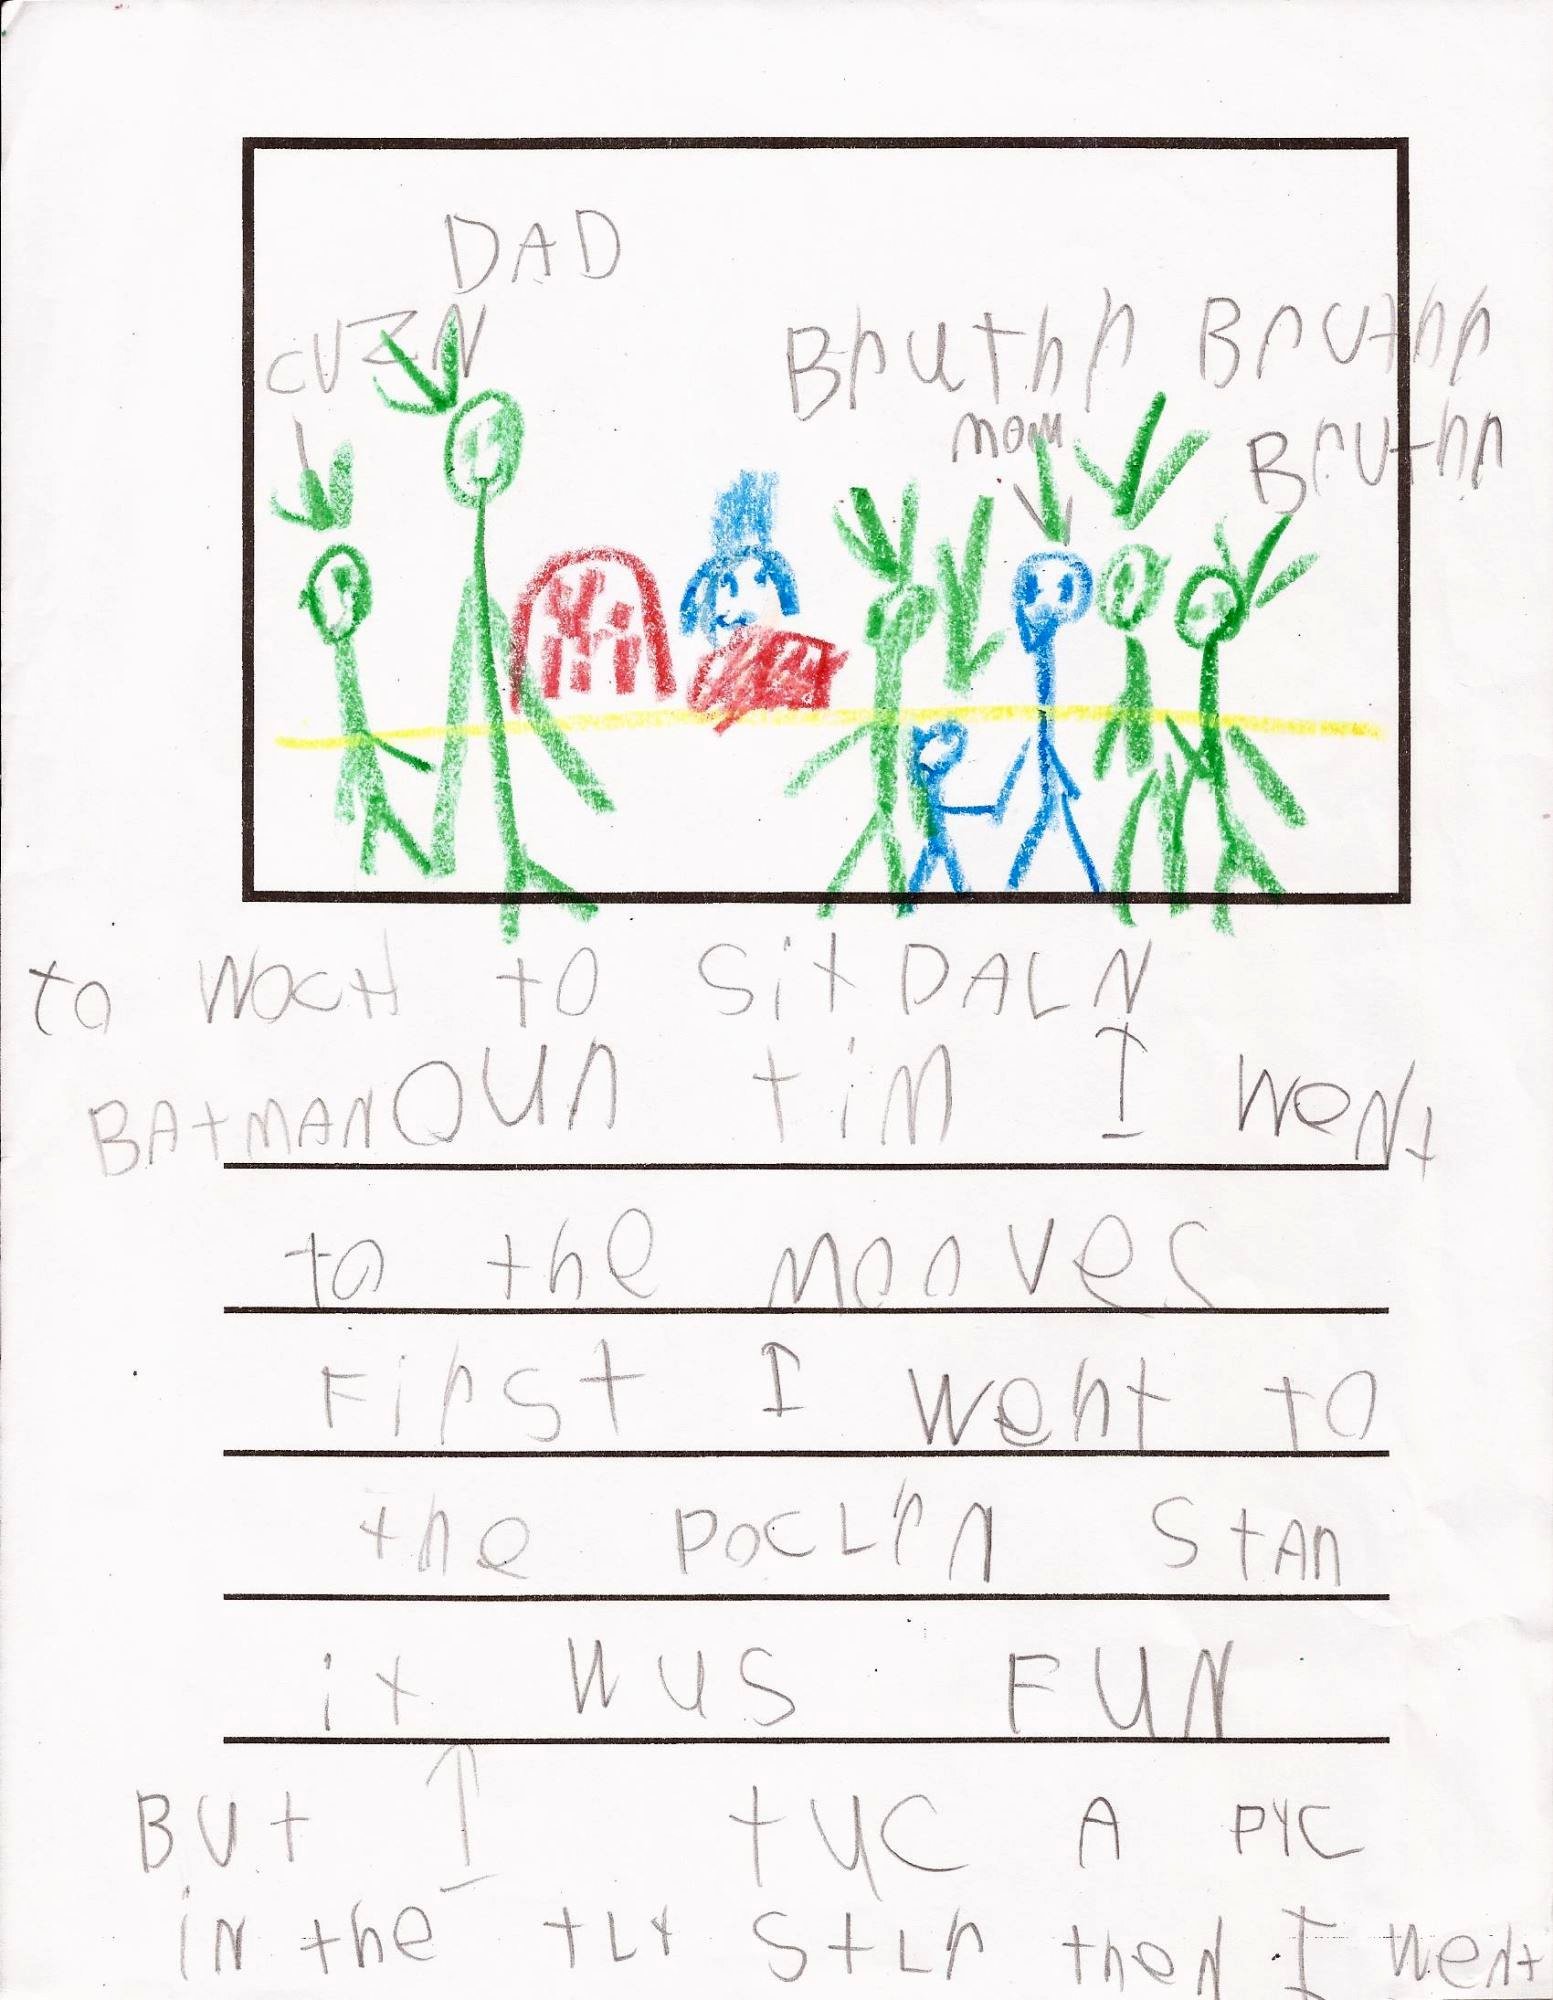 DAD
CUZN
Bruthr Bruthr
mom
Bruthr
to WOCH to SitDALN
BAtMAN QUn tiM I WeNt
to the mooves
First I Weht to
the POCLrN StAn
it WUS FUN
BUt I tUC A PYC
iN the tLt StLr theN I WeNt